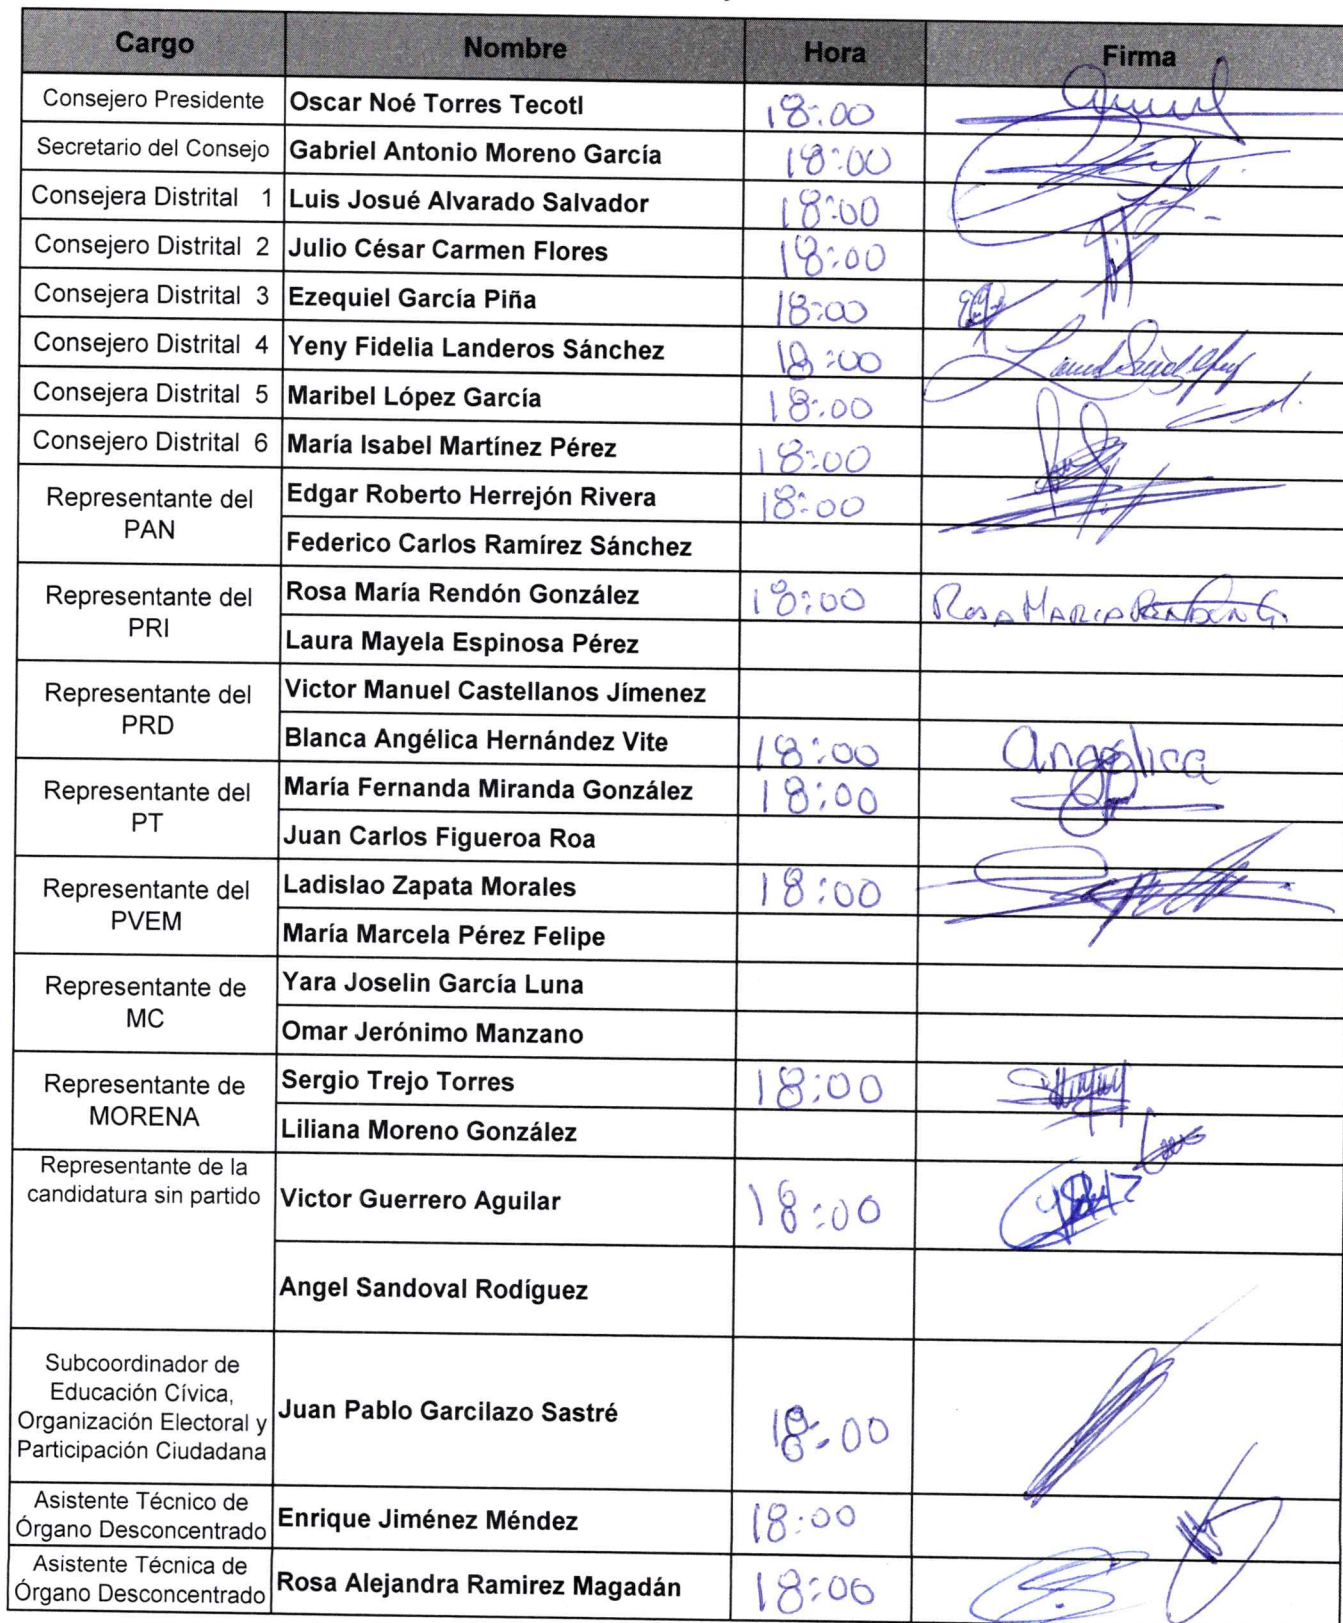 Cargo Nombre Hora Firma
Consejero Presidente Oscar Noé Torres Tecotl 18:00
Secretario del Consejo Gabriel Antonio Moreno García 18:00
Consejera Distrital 1 Luis Josué Alvarado Salvador 18:00
Consejero Distrital 2 Julio César Carmen Flores 18:00
Consejera Distrital 3 Ezequiel García Piña 18:00
Consejero Distrital 4 Yeny Fidelia Landeros Sánchez 18:00
Consejera Distrital 5 Maribel López García 18:00
Consejero Distrital 6 María Isabel Martínez Pérez 18:00
Representante del
PAN
Edgar Roberto Herrejón Rivera 18:00
Federico Carlos Ramírez Sánchez
Representante del
PRI
Rosa María Rendón González 18:00 ROSA MARIA RENDON G.
Laura Mayela Espinosa Pérez
Representante del
PRD
Victor Manuel Castellanos Jímenez
Blanca Angélica Hernández Vite 18:00 Angélica
Representante del
PT
María Fernanda Miranda González 18:00
Juan Carlos Figueroa Roa
Representante del
PVEM
Ladislao Zapata Morales 18:00
María Marcela Pérez Felipe
Representante de
MC
Yara Joselin García Luna
Omar Jerónimo Manzano
Representante de
MORENA
Sergio Trejo Torres 18:00
Liliana Moreno González
Representante de la
candidatura sin partido
Victor Guerrero Aguilar 18:00
Angel Sandoval Rodíguez
Subcoordinador de
Educación Cívica,
Organización Electoral y
Participación Ciudadana
Juan Pablo Garcilazo Sastré 18:00
Asistente Técnico de
Órgano Desconcentrado
Enrique Jiménez Méndez 18:00
Asistente Técnica de
Órgano Desconcentrado
Rosa Alejandra Ramirez Magadán 18:00